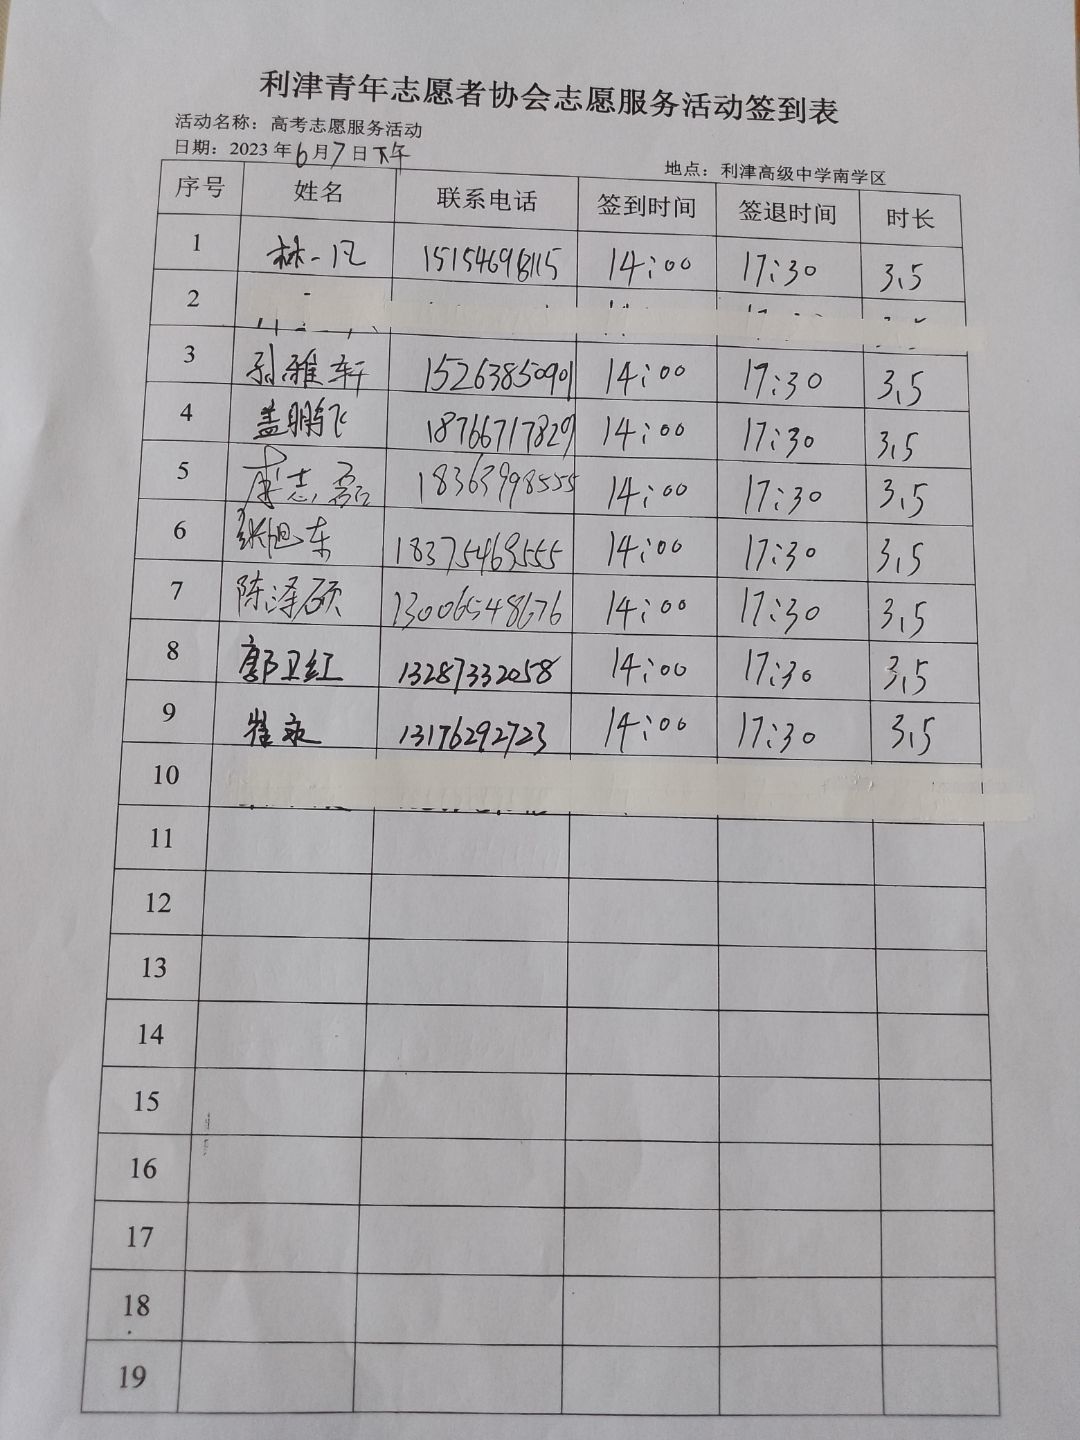 利津青年志愿者协会志愿服务活动签到表
活动名称：高考志愿服务活动
日期：2023年6月7日下午
地点：利津高级中学南学区
序号 姓名 联系电话 签到时间 签退时间 时长
1 林一凡 14:00 17:30 3.5
2
3 孙雅轩 15263850901 14:00 17:30 3.5
4 盖鹏飞 18766717829 14:00 17:30 3.5
5 志磊 18363998555 14:00 17:30 3.5
6 张旭东 18375469555 14:00 17:30 3.5
7 陈泽硕 13006548676 14:00 17:30 3.5
8 郭卫红 13287332058 14:00 17:30 3.5
9 崔永 13176292723 14:00 17:30 3.5
10
11
12
13
14
15
16
17
18
19